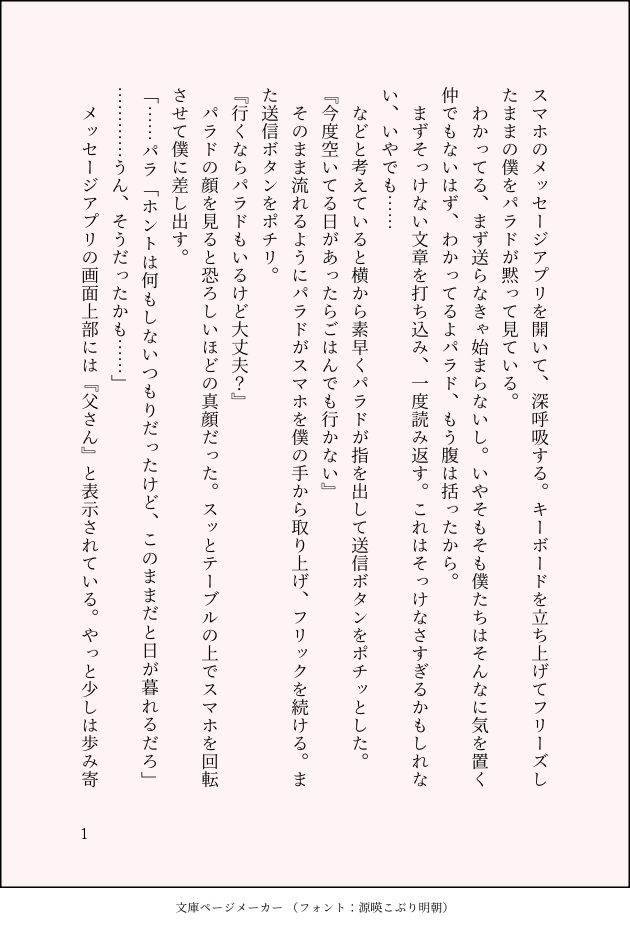 スマホのメッセージアプリを開いて、深呼吸する。キーボードを立ち上げてフリーズし
たままの僕をパラドが黙って見ている。
　わかってる、まず送らなきゃ始まらないし。いやそもそも僕たちはそんなに気を置く
仲でもないはず、わかってるよパラド、もう腹は括ったから。
　まずそっけない文章を打ち込み、一度読み返す。これはそっけなさすぎるかもしれな
い、いやでも……
　などと考えていると横から素早くパラドが指を出して送信ボタンをポチッとした。
『今度空いてる日があったらごはんでも行かない』
　そのまま流れるようにパラドがスマホを僕の手から取り上げ、フリックを続ける。ま
た送信ボタンをポチリ。
『行くならパラドもいるけど大丈夫？』
　パラドの顔を見ると恐ろしいほどの真顔だった。スッとテーブルの上でスマホを回転
させて僕に差し出す。
「……パラ「ホントは何もしないつもりだったけど、このままだと日が暮れるだろ」
…………うん、そうだったかも……」
　メッセージアプリの画面上部には『父さん』と表示されている。やっと少しは歩み寄
1
文庫ページメーカー（フォント：源暎こぶり明朝）